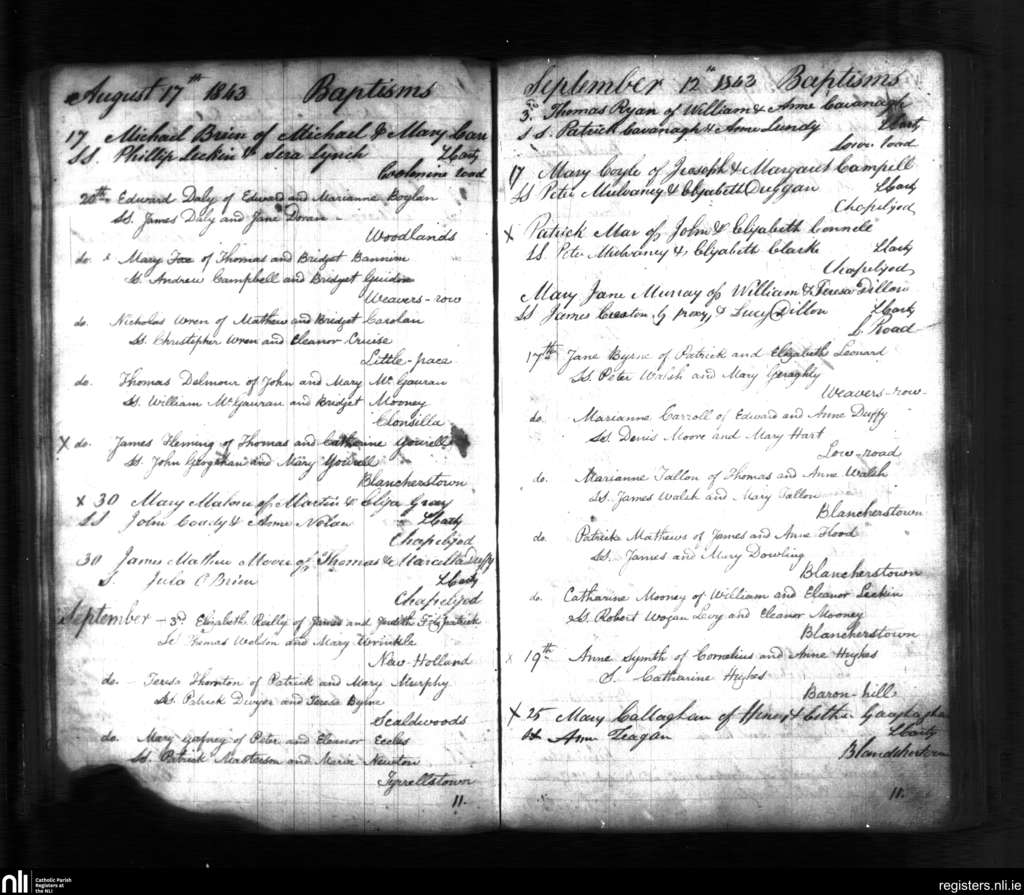 August 17th 1843 Baptisms
17 Michael Brien of Michael & Mary
SS. Phillip Leckin & Sera Lynch LCarty
Coolmine road
20th Edward Daly of Edward and Marianne Boylan
SS. James Daly and Jane Doran
Woodlands
do. x Mary Foxe of Thomas and Bridget Bannion
SS. Andrew Campbell and Bridget
Weavers-row
do. Nicholas Wren of Mathew and Bridget Carolan
SS. Christopher Wren and Eleanor Cruise
Little-pace
do. Thomas Delmour of John and Mary McGauran
SS. William McGauran and Bridget Mooney
Clonsilla
X do. James Fleming of Thomas and Catherine Yourell
SS. John Geoghehan and Mary Yourell
Blancherstown
x 30 Mary Malone of Martin & Eliza Gray
SS John Coady & Anne Nolan LCarty
Chapelizod
30 James Mathew Moore of Thomas & Marcella Duffy
S. Jula O Brien LCarty
Chapelizod
September - 3d Elizabeth Reilly of James and Judith Fitzpatrick
SS Thomas Welson and Mary Wrinkle
New-Holland
do. Teresa Thornton of Patrick and Mary Murphy
SS. Patrick Dwyer and Teresa Byrne
Scaldwoods
do. Mary Gafney of Peter and Eleanor Eccles
SS. Patrick Masterson and Maria Newton
Tyrrellstown
11.
September 12th 1843 Baptisms
3d Thomas Ryan of William & Anne Cavanagh
SS. Patrick Cavanagh & Anne Lundy LCarty
Low road
17 Mary Coyle of Joseph & Margaret Campell
SS Peter Mulvaney & Elizabeth Duggan LCarty
Chapelizod
X Patrick Mar of John & Elizabeth Connell
SS. Peter Mulvaney & Elyabeth Clarke LCarty
Chapelizod
Mary Jane Murray of William & Teresa Dillon
SS James Creston by proxy, & Lucy Dillon LCarty
L. Road
17th Jane Byrne of Patrick and Elizabeth Leonard
SS Peter Walsh and Mary Geraghty
Weavers-row-
do. Marianne Carroll of Edward and Anne Duffy
SS. Denis Moore and Mary Hart
Low-road
do. Marianne Tallon of Thomas and Anne Walsh
SS. James Walsh and Mary Tallon
Blancherstown
do. Patrick Mathews of James and Anne Flood
SS. James and Mary Dowling
Blancherstown
do. Catharine Mooney of William and Eleanor Leckin
SS. Robert Wogan Levy and Eleanor Mooney
Blancherstown
x 19th Anne Symth of Cornelius and Anne Hughes
S. Catharine Hughes
Baron-hill
X 25 Mary Callaghan of Henry & Esther
Ann Teagan LCarty
11.
nli Catholic Parish
Registers at
the NLI
registers.nli.ie